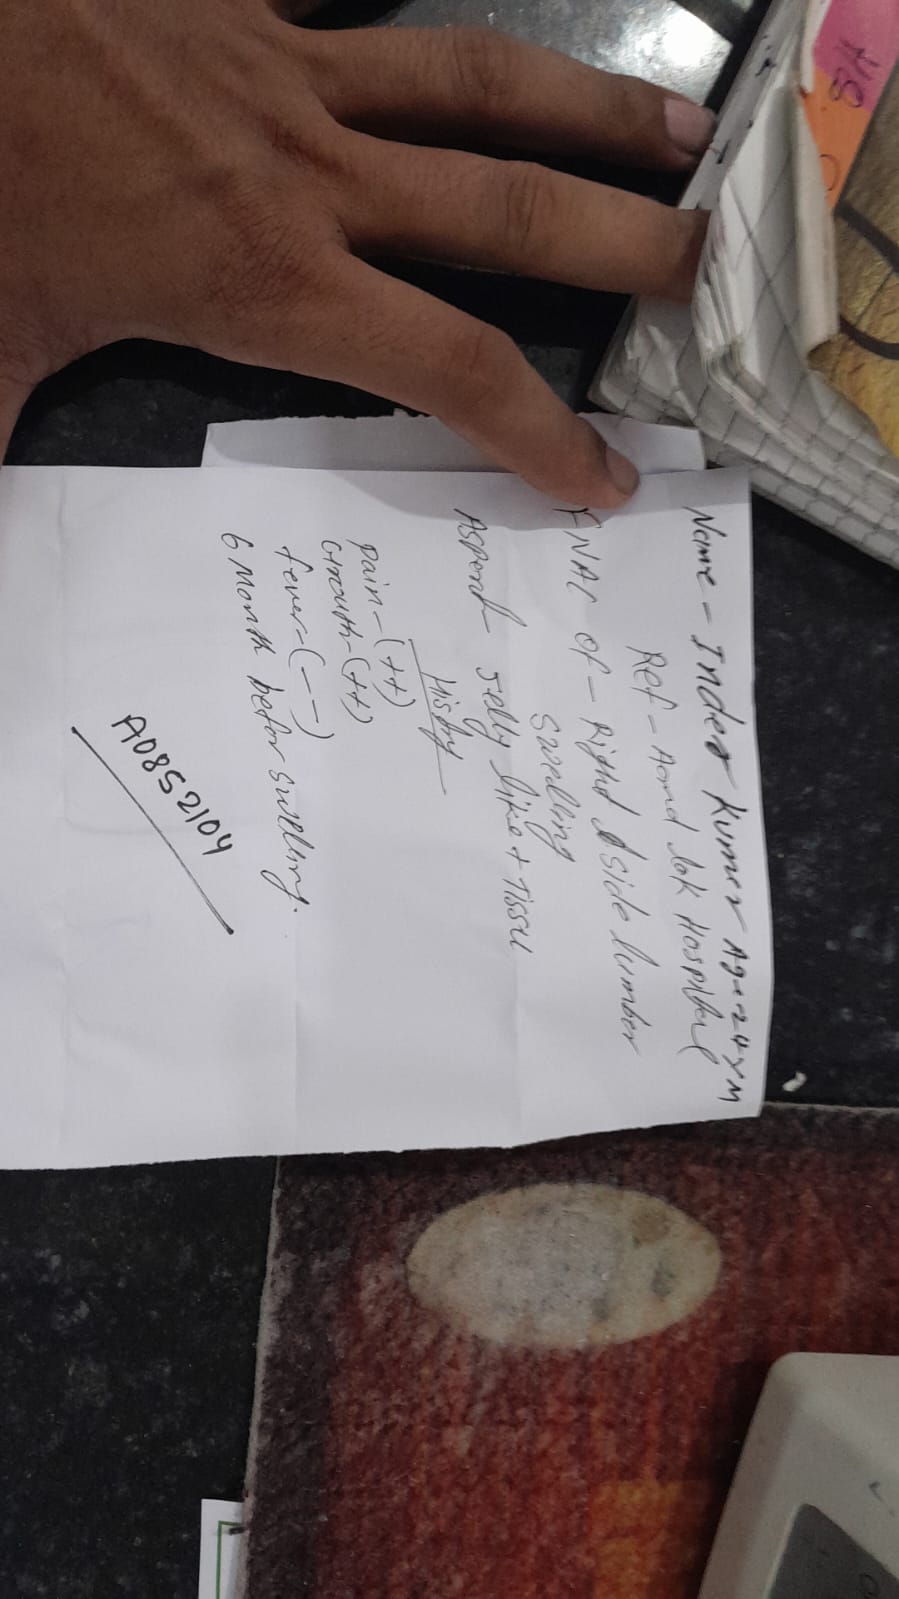 Name - Inder Kumer Age 24 Y M
Ref - Hospital
FNAC of - Right side lumber
swelling
Asperat Jelly like + Tissu
Histry
Pain - (++)
Grouth - (++)
fever - (--)
6 Month befor swelling.
A0852104